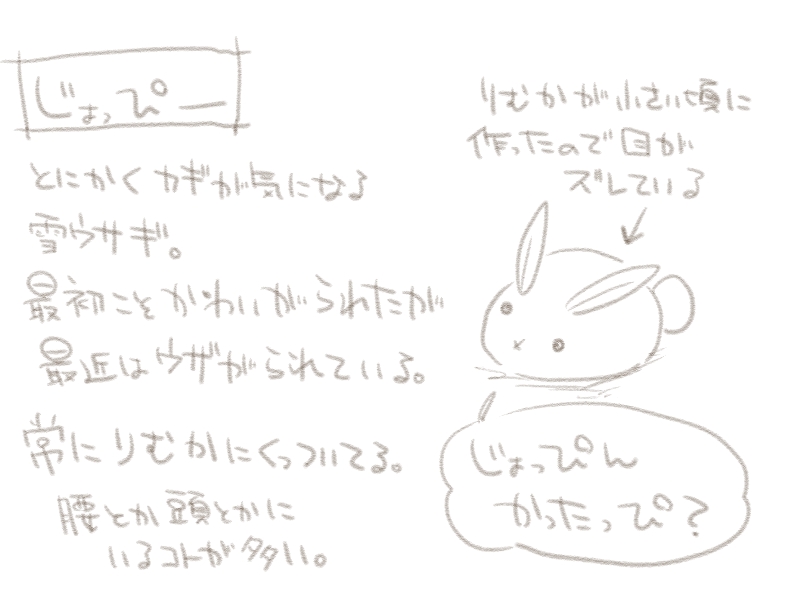 じょっぴー
とにかくカギが気になる
雪ウサギ。
最初こそかわいがられたが
最近はウザがられている。
常にりむかにくっついてる。
腰とか頭とかに
いるコトが多い。
りむかが小さい頃に
作ったので目が
ズレている
じょっぴん
かったっぴ?